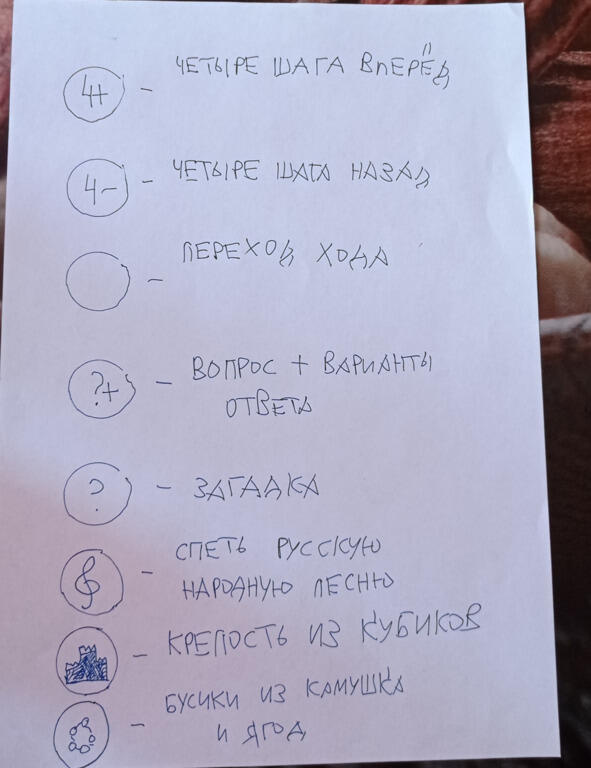 4+ - ЧЕТЫРЕ ШАГА ВПЕРЁД
4- - ЧЕТЫРЕ ШАГА НАЗАД
- ПЕРЕХОД ХОДА
?+ - ВОПРОС + ВАРИАНТЫ
ОТВЕТА
? - ЗАГАДКА
- СПЕТЬ РУССКУЮ
НАРОДНУЮ ПЕСНЮ
- КРЕПОСТЬ ИЗ КУБИКОВ
- БУСИКИ ИЗ КАМУШКА
И ЯГОД